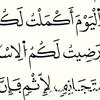 الْيَوْمَ أَكْمَلْتُ لَكُ
رَضِيتُ لَكُمُ الْإِسْ
مُتَجَانِفٍ لِإِثْمٍ فَإِنَّ